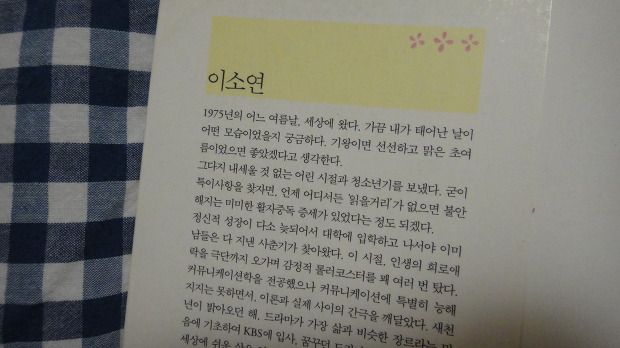 이소연
1975년의 어느 여름날, 세상에 왔다. 가끔 내가 태어난 날이
어떤 모습이었을지 궁금하다. 기왕이면 선선하고 맑은 초여
름이었으면 좋았겠다고 생각한다.
그다지 내세울 것 없는 어린 시절과 청소년기를 보냈다. 굳이
특이사항을 찾자면, 언제 어디서든 '읽을거리'가 없으면 불안
해지는 미미한 활자중독 증세가 있었다는 정도 되겠다.
정신적 성장이 다소 늦되어서 대학에 입학하고 나서야 이미
남들은 다 지낸 사춘기가 찾아왔다. 이 시절, 인생의 희로애
락을 극단까지 오가며 감정적 롤러코스터를 꽤 여러 번 탔다.
커뮤니케이션학을 전공했으나 커뮤니케이션에 특별히 능해
지지는 못하면서, 이론과 실제 사이의 간극을 깨달았다. 새천
년이 밝아오던 해, 드라마가 가장 삶과 비슷한 장르라는 믿
음에 기초하여 KBS에 입사, 꿈꾸던
세상에